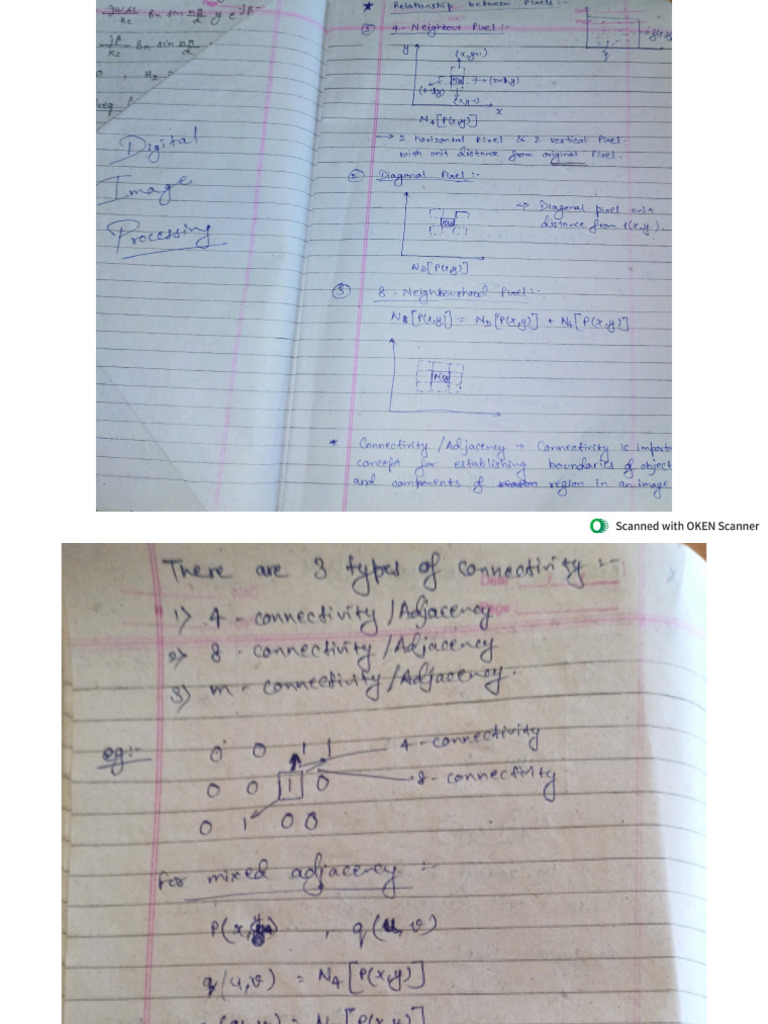 Digital
Image
Processing
* Relationship between Pixels :-
① 4-Neighbour Pixel :-
y
(x,y+1)
(x+1,y)
(x-1,y)
(x,y-1)
x
N4[P(x,y)]
→ 2 horizontal Pixel & 2 vertical Pixel
with unit distance from original Pixel.
② Diagonal Pixel :-
→ Diagonal pixel unit
distance from P(x,y).
ND[P(x,y)]
③ 8-Neighbourhood Pixel :-
N8[P(x,y)] = ND[P(x,y)] + N4[P(x,y)]
* Connectivity /Adjacency → Connectivity is importa
concept for establishing boundaries of object
and components of region in an image
Scanned with OKEN Scanner
There are 3 types of connectivity :-
1) 4-connectivity /Adjacency
2) 8-connectivity /Adjacency
3) m-connectivity /Adjacency.
eg:-
0 0 1 1
4-connectivity
0 0 1 0
8-connectivity
0 1 0 0
for mixed adjacency :-
P(x,y) , q(u,v)
q(u,v) = N4[P(x,y)]